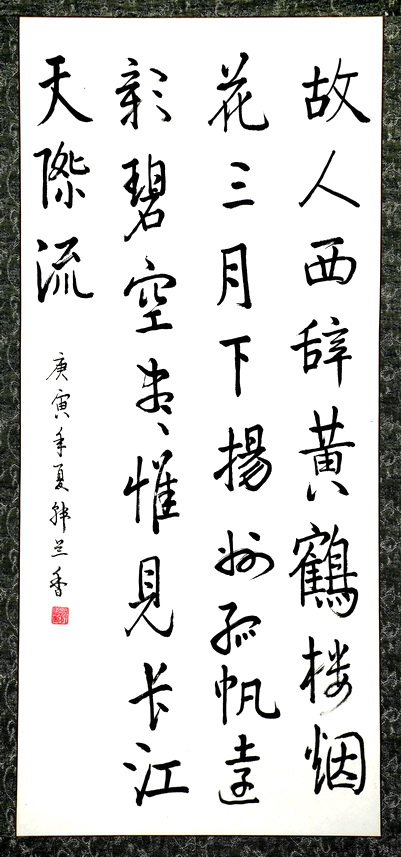 故人西辞黄鶴楼烟
花三月下揚州孤帆遠
影碧空尽惟見长江
天際流
庚寅年夏韩兰香